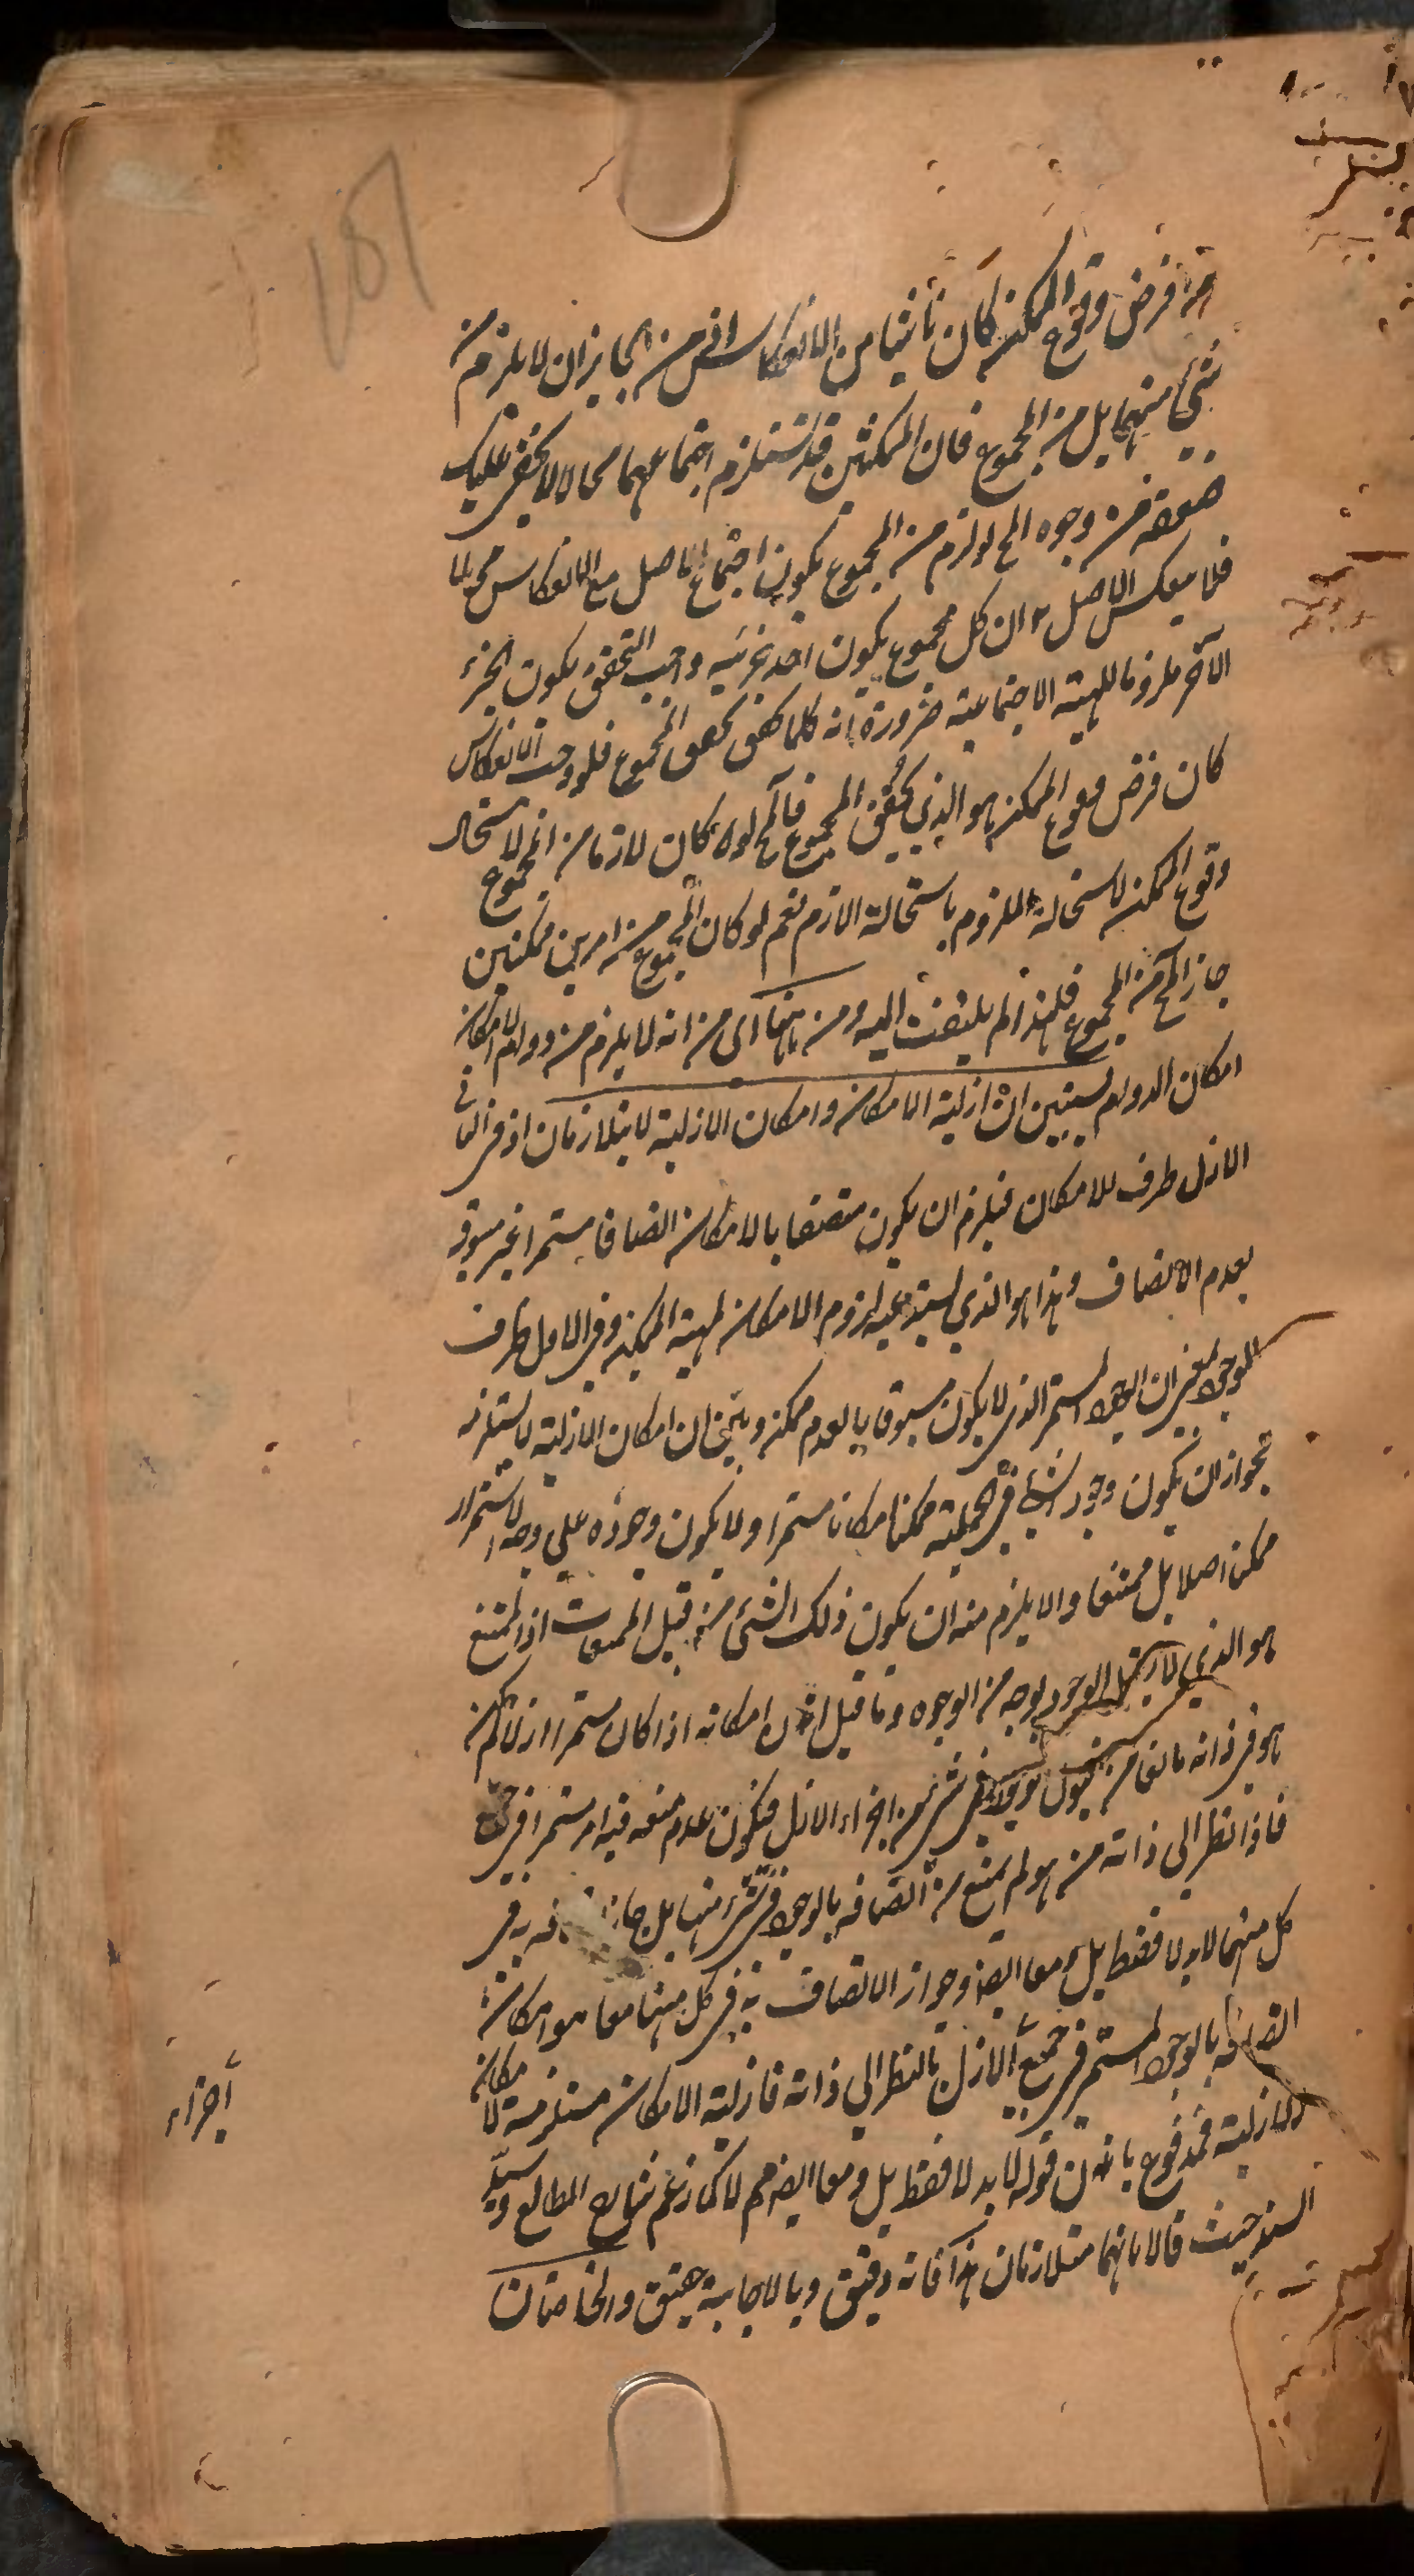 من فرض وقوع الممكن كان ناشيا من الانعكاس اذ من الجايز ان لا يلزم من
شئ منهما بل من المجموع فان الممكنين قد تستلزم اجتماعهما محالا لا يخفى عليك
ضعفه من وجوه المح لو لزم من المجموع يكون اجتماع الاصل مع الانعكاس محالا
فلا ينعكس الاصل ان كل مجموع يكون احد جزئيه واجب التحقق يكون الجزء
الآخر ملزوما للهيئة الاجتماعية ضرورة انه كلما تحقق تحقق المجموع فلو وجب الانعكاس
كان فرض وقوع الممكن هو الذي يحقق المجموع فالمح لو كان لازما من المجموع لاستحال
وقوع الممكن لاستحالة الملزوم باستحالة اللازم نعم لو كان المجموع من امرين ممكنين
جاز المح من المجموع فلهذا لم يلتفت اليه ومن ههنا اى من انه لا يلزم من دوام الامكان
امكان الدوام يستبين ان ازلية الامكان وامكان الازلية لا يتلازمان اذ في الثاني
الازل ظرف للامكان فيلزم ان يكون متصفا بالامكان اتصافا مستمرا غير مسبوق
بعدم الاتصاف وهذا هو الذي يستدعيه لزوم الامكان لمهية الممكن وفي الاول ظرف
للوجود بمعنى ان الوجود المستمر الذي لا يكون مسبوقا بالعدم ممكن وبين ان امكان الازلية لا يستلزمه
لجواز ان يكون وجود الشئ في الجملة ممكنا امكانا مستمرا ولا يكون وجوده على وجه الاستمرار
ممكن اصلا بل ممتنعا ولا يلزم منه ان يكون ذلك الشئ من قبيل الممتنعات اذ الممتنع
هو الذي لا يقبل الوجود بوجه من الوجوه وما قيل ان امكانه اذا كان مستمرا ازلا لم يكن
هو في ذاته مانعا من قبول الوجود في شئ من اجزاء الازل فيكون عدم منعه فيه امر مستمر في جميع
فاذا نظر الى ذاته من هو لم يمنع من اتصافه بالوجود في شئ منها بل جاز اتصافه به في
كل منهما لا بدلا فقط بل ومعا ايضا وجواز الاتصاف به في كل منها معا هو امكان
اتصافه بالوجود المستمر في جميع الازل بالنظر الى ذاته فازلية الامكان مستلزمة لامكان
الازلية فمدفوع بان قوله لا بدلا فقط بل ومعا ايضا مم لا كما زعم شارح المطالع وسيد
السند حيث قالا بانهما متلازمان هذا فانه دقيق وبالاجابة حقيق والخاصتان
اجزاء